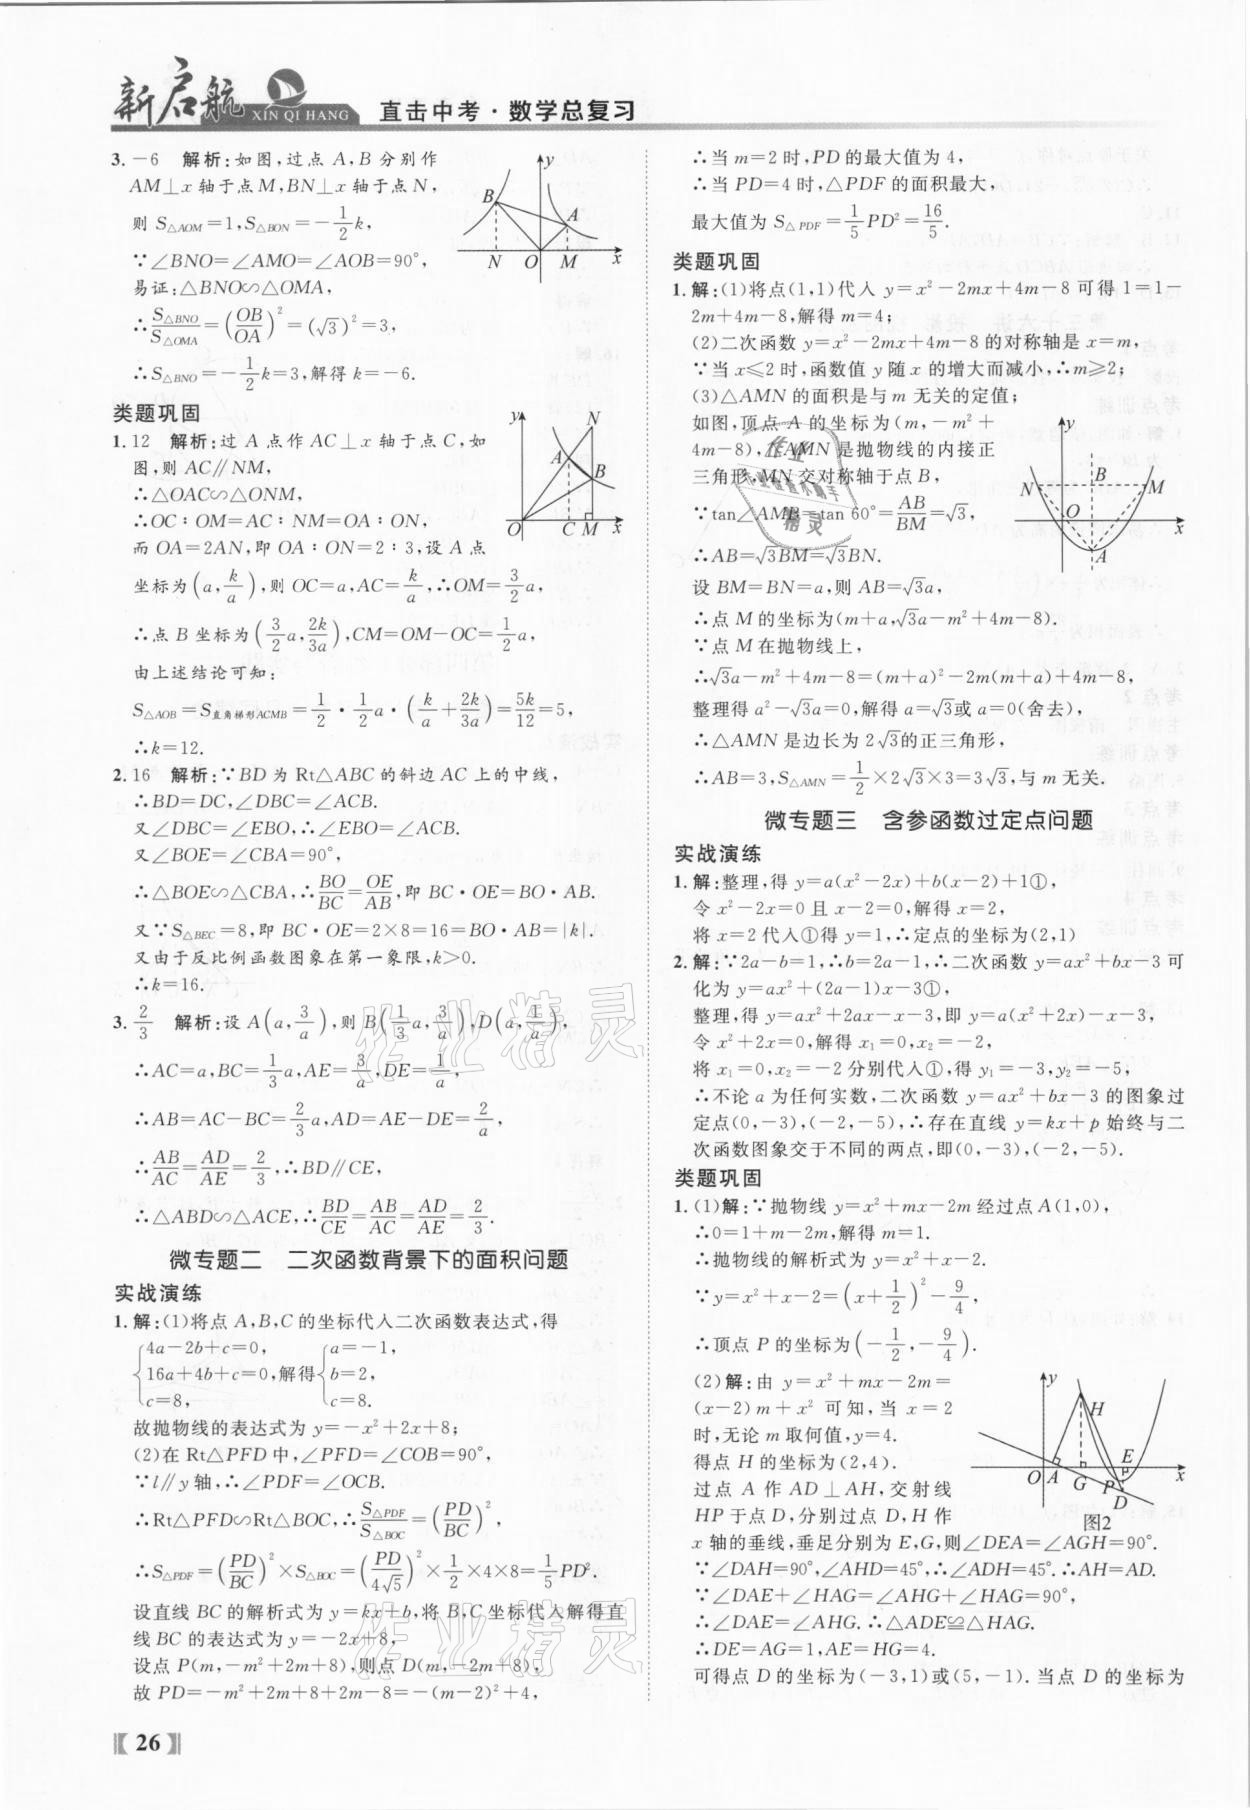 新启航
XIN QI HANG
直击中考·数学总复习
3. −6 解析:如图,过点 A,B 分别作
AM⊥x 轴于点 M,BN⊥x 轴于点 N,
则 S△AOM=1,S△BON=−1/2k,
∵∠BNO=∠AMO=∠AOB=90°,
易证:△BNO∽△OMA,
∴S△BNO/S△OMA=(OB/OA)²=(√3)²=3,
∴S△BNO=−1/2k=3,解得 k=−6.
y
B
A
N O M x
类题巩固
1. 12 解析:过 A 点作 AC⊥x 轴于点 C,如
图,则 AC∥NM,
∴△OAC∽△ONM,
∴OC∶OM=AC∶NM=OA∶ON,
而 OA=2AN,即 OA∶ON=2∶3,设 A 点
坐标为(a,k/a),则 OC=a,AC=k/a,∴OM=3/2a,
∴点 B 坐标为(3/2a,2k/3a),CM=OM−OC=1/2a,
由上述结论可知:
S△AOB=S直角梯形ACMB=1/2·1/2a·(k/a+2k/3a)=5k/12=5,
∴k=12.
y N
A
B
O C M x
2. 16 解析:∵BD 为 Rt△ABC 的斜边 AC 上的中线,
∴BD=DC,∠DBC=∠ACB.
又∠DBC=∠EBO,∴∠EBO=∠ACB.
又∠BOE=∠CBA=90°,
∴△BOE∽△CBA,∴BO/BC=OE/AB,即 BC·OE=BO·AB.
又∵S△BEC=8,即 BC·OE=2×8=16=BO·AB=|k|.
又由于反比例函数图象在第一象限,k>0.
∴k=16.
3. 2/3 解析:设 A(a,3/a),则 B(1/3a,3/a),D(a,1/a),
∴AC=a,BC=1/3a,AE=3/a,DE=1/a,
∴AB=AC−BC=2/3a,AD=AE−DE=2/a,
∴AB/AC=AD/AE=2/3,∴BD∥CE,
∴△ABD∽△ACE,∴BD/CE=AB/AC=AD/AE=2/3.
微专题二 二次函数背景下的面积问题
实战演练
1. 解:(1)将点 A,B,C 的坐标代入二次函数表达式,得
{4a−2b+c=0, {a=−1,
16a+4b+c=0,解得 b=2,
c=8, c=8.
故抛物线的表达式为 y=−x²+2x+8;
(2)在 Rt△PFD 中,∠PFD=∠COB=90°,
∵l∥y 轴,∴∠PDF=∠OCB.
∴Rt△PFD∽Rt△BOC,∴S△PDF/S△BOC=(PD/BC)²,
∴S△PDF=(PD/BC)²×S△BOC=(PD/4√5)²×1/2×4×8=1/5PD².
设直线 BC 的解析式为 y=kx+b,将 B,C 坐标代入解得直
线 BC 的表达式为 y=−2x+8,
设点 P(m,−m²+2m+8),则点 D(m,−2m+8),
故 PD=−m²+2m+8+2m−8=−(m−2)²+4,
∴当 m=2 时,PD 的最大值为 4,
∴当 PD=4 时,△PDF 的面积最大,
最大值为 S△PDF=1/5PD²=16/5.
类题巩固
1. 解:(1)将点(1,1)代入 y=x²−2mx+4m−8 可得 1=1−
2m+4m−8,解得 m=4;
(2)二次函数 y=x²−2mx+4m−8 的对称轴是 x=m,
∵当 x≤2 时,函数值 y 随 x 的增大而减小,∴m≥2;
(3)△AMN 的面积是与 m 无关的定值;
如图,顶点 A 的坐标为(m,−m²+
4m−8),△AMN 是抛物线的内接正
三角形,MN 交对称轴于点 B,
∵tan∠AMB=tan 60°=AB/BM=√3,
∴AB=√3BM=√3BN.
设 BM=BN=a,则 AB=√3a,
∴点 M 的坐标为(m+a,√3a−m²+4m−8).
∵点 M 在抛物线上,
∴√3a−m²+4m−8=(m+a)²−2m(m+a)+4m−8,
整理得 a²−√3a=0,解得 a=√3或 a=0(舍去),
∴△AMN 是边长为 2√3的正三角形,
∴AB=3,S△AMN=1/2×2√3×3=3√3,与 m 无关.
y
B
N M
O x
A
微专题三 含参函数过定点问题
实战演练
1. 解:整理,得 y=a(x²−2x)+b(x−2)+1①,
令 x²−2x=0 且 x−2=0,解得 x=2,
将 x=2 代入①得 y=1,∴定点的坐标为(2,1)
2. 解:∵2a−b=1,∴b=2a−1,∴二次函数 y=ax²+bx−3 可
化为 y=ax²+(2a−1)x−3①,
整理,得 y=ax²+2ax−x−3,即 y=a(x²+2x)−x−3,
令 x²+2x=0,解得 x₁=0,x₂=−2,
将 x₁=0,x₂=−2 分别代入①,得 y₁=−3,y₂=−5,
∴不论 a 为任何实数,二次函数 y=ax²+bx−3 的图象过
定点(0,−3),(−2,−5),∴存在直线 y=kx+p 始终与二
次函数图象交于不同的两点,即(0,−3),(−2,−5).
类题巩固
1. (1)解:∵抛物线 y=x²+mx−2m 经过点 A(1,0),
∴0=1+m−2m,解得 m=1.
∴抛物线的解析式为 y=x²+x−2.
∵y=x²+x−2=(x+1/2)²−9/4,
∴顶点 P 的坐标为(−1/2,−9/4).
(2)解:由 y=x²+mx−2m=
(x−2)m+x² 可知,当 x=2
时,无论 m 取何值,y=4.
得点 H 的坐标为(2,4).
过点 A 作 AD⊥AH,交射线
HP 于点 D,分别过点 D,H 作
x 轴的垂线,垂足分别为 E,G,则∠DEA=∠AGH=90°.
∵∠DAH=90°,∠AHD=45°,∴∠ADH=45°.∴AH=AD.
∵∠DAE+∠HAG=∠AHG+∠HAG=90°,
∴∠DAE=∠AHG.∴△ADE≌△HAG.
∴DE=AG=1,AE=HG=4.
可得点 D 的坐标为(−3,1)或(5,−1). 当点 D 的坐标为
y
H
E
O A G P x
D
图2
26
作业精灵
作业精灵
作业
精灵